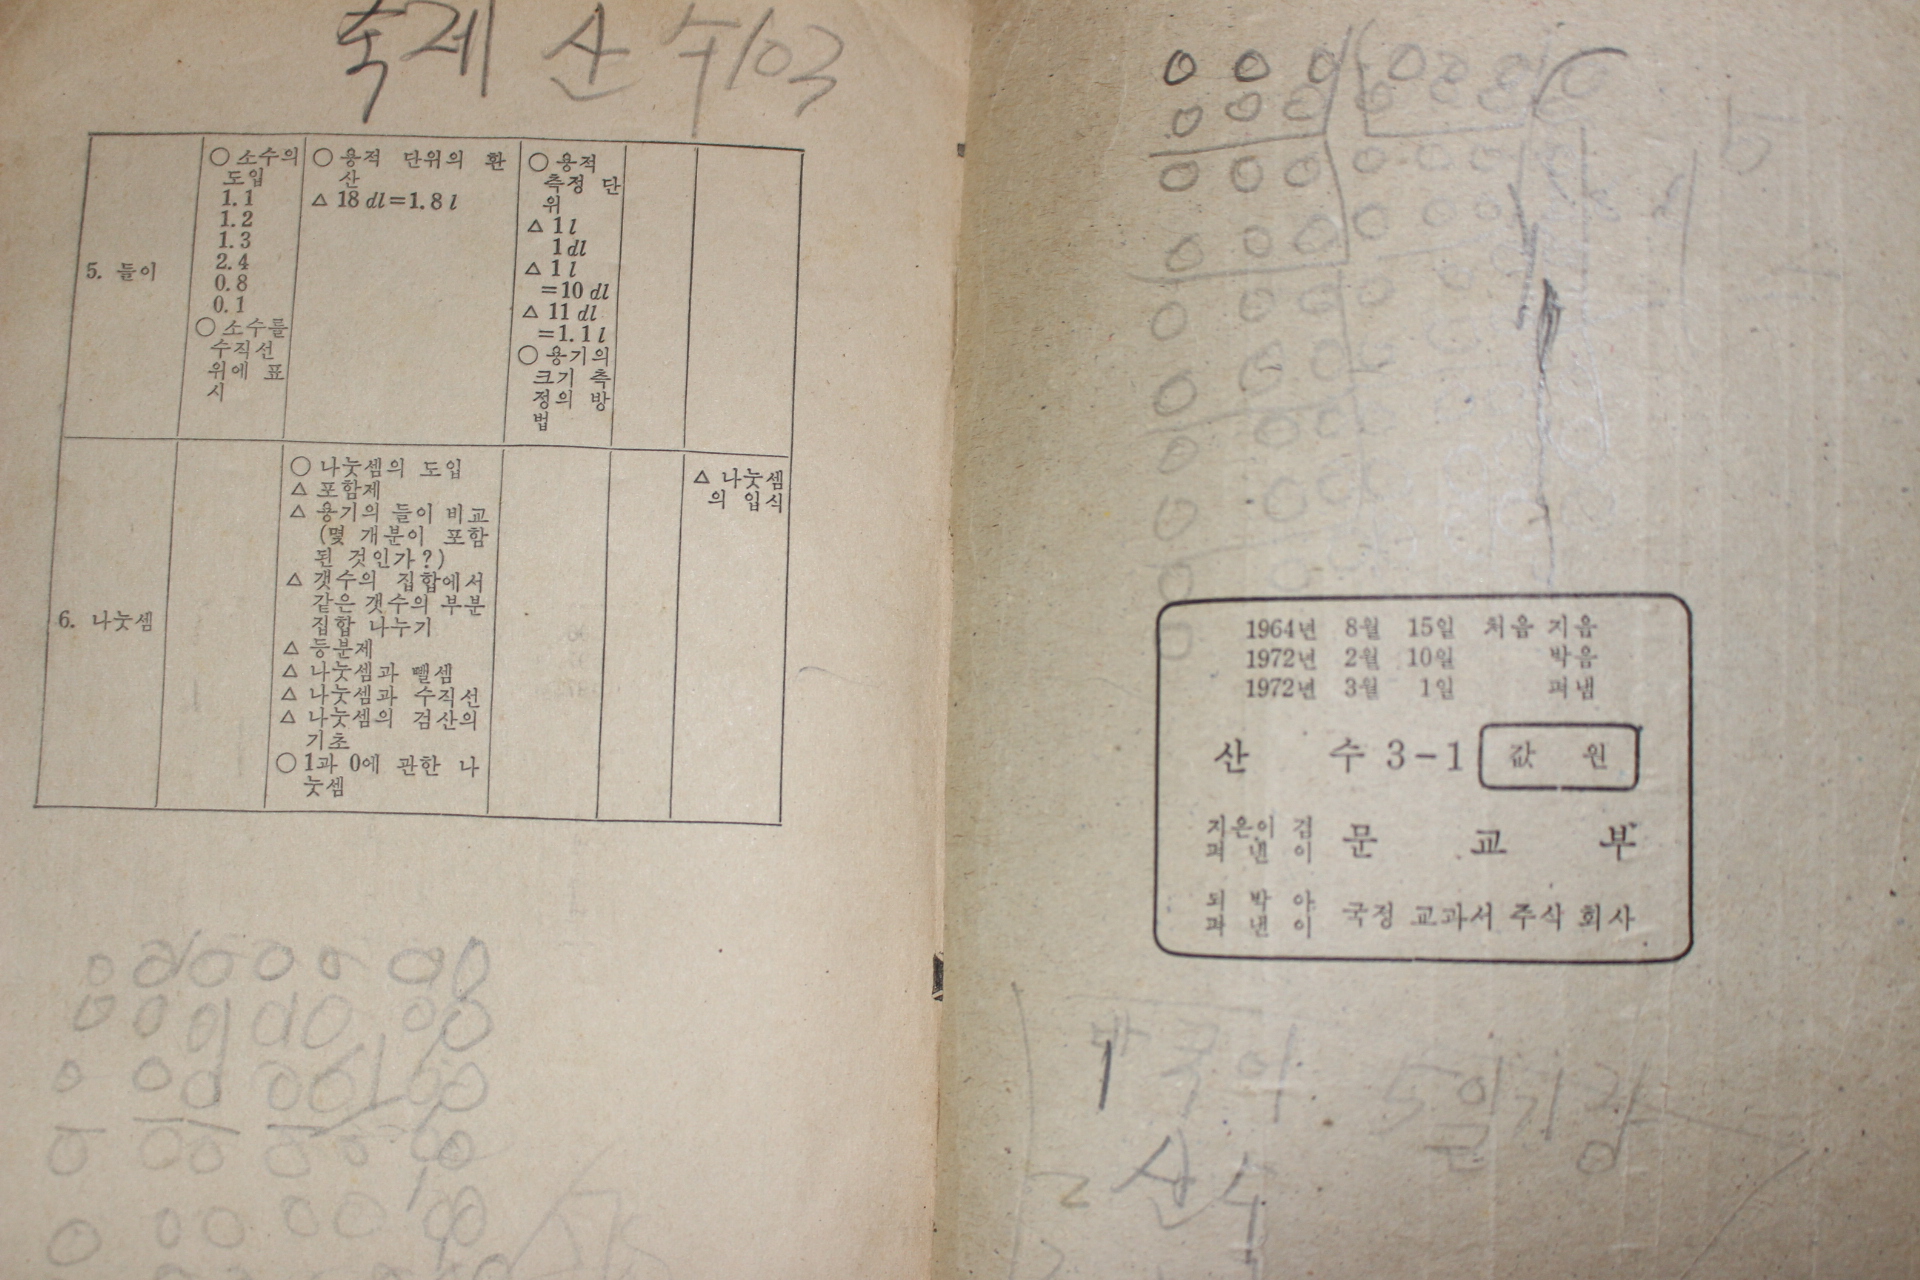 숙제 산수103
5. 들이
○ 소수의
도입
1.1
1.2
1.3
2.4
0.8
0.1
○ 소수를
수직선
위에 표
시
○ 용적 단위의 환
산
△ 18 dl=1.8 l
○ 용적
측정 단
위
△ 1 l
1 dl
△ 1 l
=10 dl
△ 11 dl
=1.1 l
○ 용기의
크기 측
정의 방
법
6. 나눗셈
○ 나눗셈의 도입
△ 포함제
△ 용기의 들이 비교
(몇 개분이 포함
된 것인가?)
△ 갯수의 집합에서
같은 갯수의 부분
집합 나누기
△ 등분제
△ 나눗셈과 뺄셈
△ 나눗셈과 수직선
△ 나눗셈의 검산의
기초
○ 1과 0에 관한 나
눗셈
△ 나눗셈
의 입식
1964년 8월 15일 처음 지음
1972년 2월 10일 박음
1972년 3월 1일 펴냄
산 수 3-1 값 원
지은이 겸
펴 낸 이
문 교 부
되 박 아
펴 낸 이
국정 교과서 주식 회사
2 산수